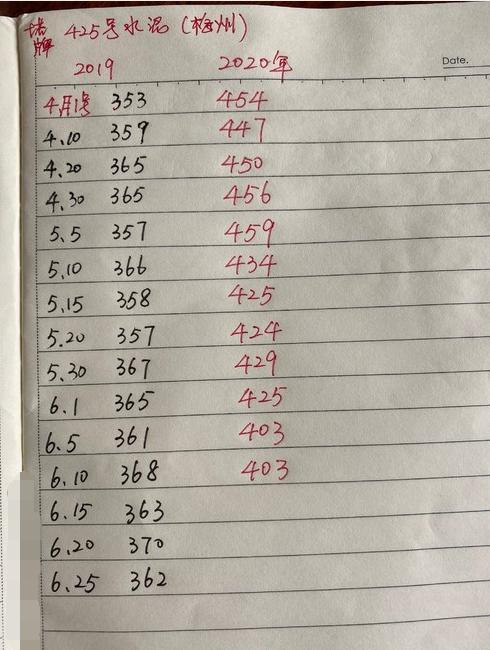 塔牌 425号水泥(梅州)
2019 2020年
Date.
4月1号 353 454
4.10 359 447
4.20 365 450
4.30 365 456
5.5 357 459
5.10 366 434
5.15 358 425
5.20 357 424
5.30 367 429
6.1 365 425
6.5 361 403
6.10 368 403
6.15 363
6.20 370
6.25 362